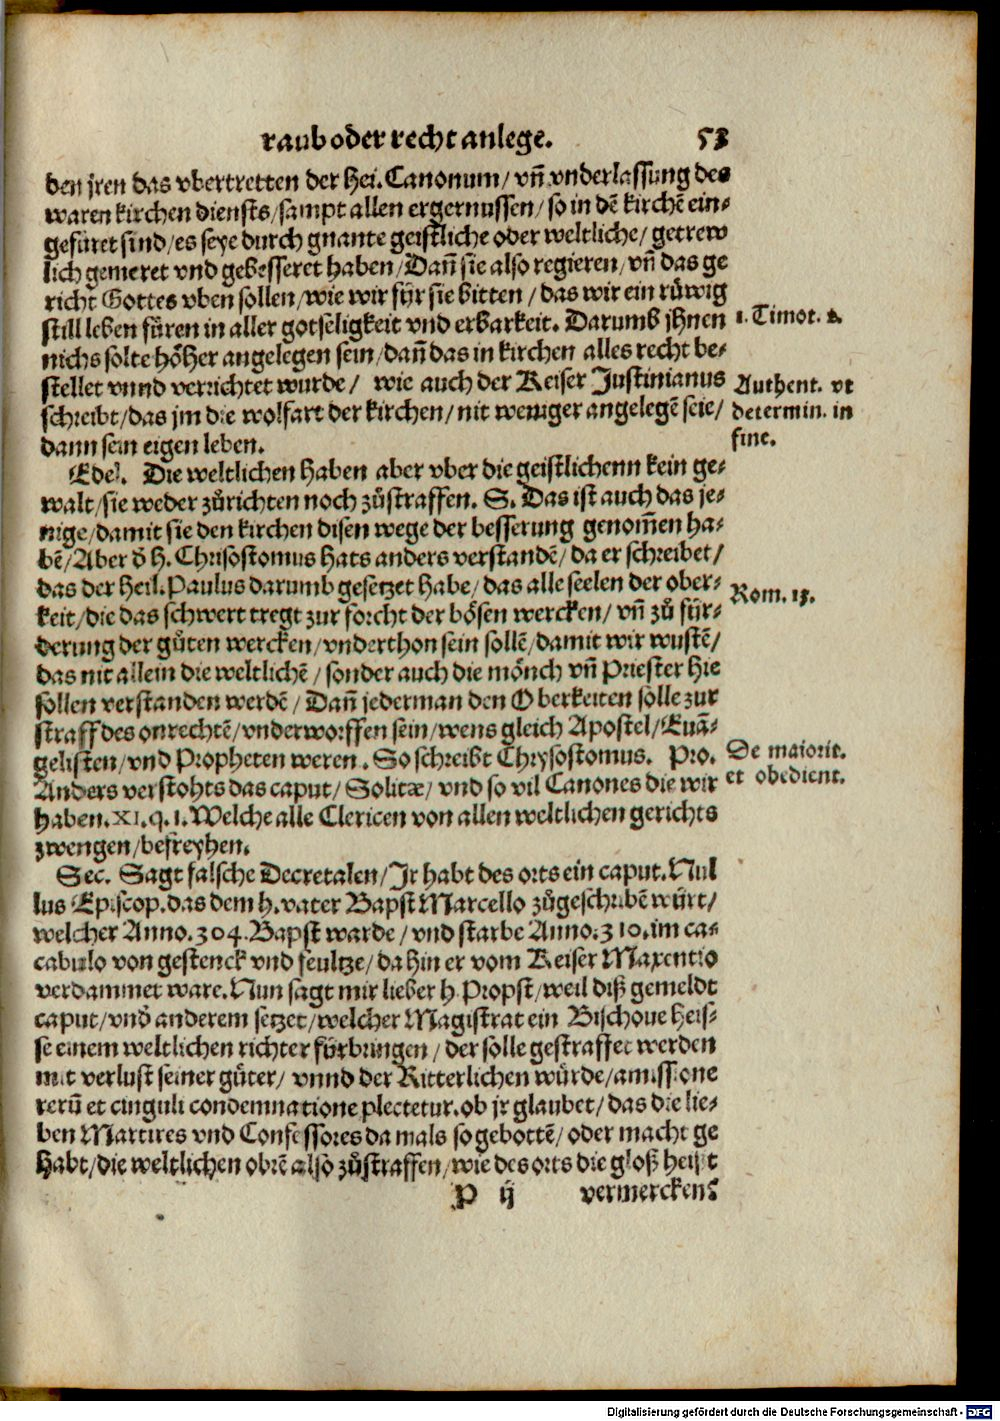 raub oder recht anlege. 53
den jren das vbertretten der Hei. Canonum/ vñ vnderlassung des
waren kirchen diensts/sampt allen ergernussen/ so in dẽ kirchẽ ein-
gefüret sind/es seye durch gnante geistliche oder weltliche/ getrew
lich gemeret vnd gebesseret haben/Dañ sie also regieren/vñ das ge
richt Gottes vben sollen/wie wir für sie bitten/das wir ein rüwig
still leben füren in aller gotseligkeit vnd erbarkeit. Darumb jhnen
1. Timot. 2.
nichs solte höher angelegen sein/dañ das in kirchen alles recht be-
stellet vnnd verrichtet wurde/ wie auch der Keiser Justinianus
schreibt/das jm die wolfart der kirchen/nit weniger angelegẽ seie/
dann sein eigen leben.
Authent. vt
determin. in
fine.
Edel. Die weltlichen haben aber vber die geistlichenn kein ge-
walt/sie weder zůrichten noch zůstraffen. S. Das ist auch das je-
nige/damit sie den kirchen disen wege der besserung genom̃en ha-
bẽ/Aber d̕ H. Chrisostomus hats anders verstandẽ/da er schreibet/
das der Heil. Paulus darumb gesetzet habe/das alle seelen der ober-
Rom. 13.
keit/die das schwert tregt zur forcht der bösen wercken/vñ zů für-
derung der gůten wercken/vnderthon sein sollẽ/damit wir wustẽ/
das nit allein die weltlichẽ/sonder auch die mönch vñ Priester hie
sollen verstanden werdẽ/Dañ jederman den Oberkeiten solle zur
straff des onrechtẽ/vnderworffen sein/wens gleich Apostel/Euã-
gelisten/vnd Propheten weren. So schreibt Chrysostomus. Pro.
Anders verstohts das caput/ Solitæ/ vnd so vil Canones die wir
De maiorit.
et obedient.
haben. XI. q. 1. Welche alle Clericen von allen weltlichen gerichts
zwengen/befreyhen.
Sec. Sagt falsche Decretalen/Jr habt des orts ein caput. Nul
lus Episcop. das dem h. vater Bapst Marcello zůgeschribẽ würt/
welcher Anno. 304. Bapst warde/vnd starbe Anno. 310. im ca-
cabulo von gestenck vnd feultze/da hin er vom Keiser Maxentio
verdammet ware. Nun sagt mir lieber h. Propst/weil diß gemeldt
caput/vnd̕ anderem setzet/welcher Magistrat ein Bischoue heis-
se einem weltlichen richter fürbringen/der solle gestraffet werden
mit verlust seiner güter/ vnnd der Ritterlichen würde/amissione
rerũ et cinguli condemnatione plectetur. ob jr glaubet/das die lie-
ben Martires vnd Confessores da mals so gebottẽ/oder macht ge
habt/die weltlichen obrẽ also zůstraffen/wie des orts die gloß heist
P ij vermercken?
Digitalisierung gefördert durch die Deutsche Forschungsgemeinschaft - DFG